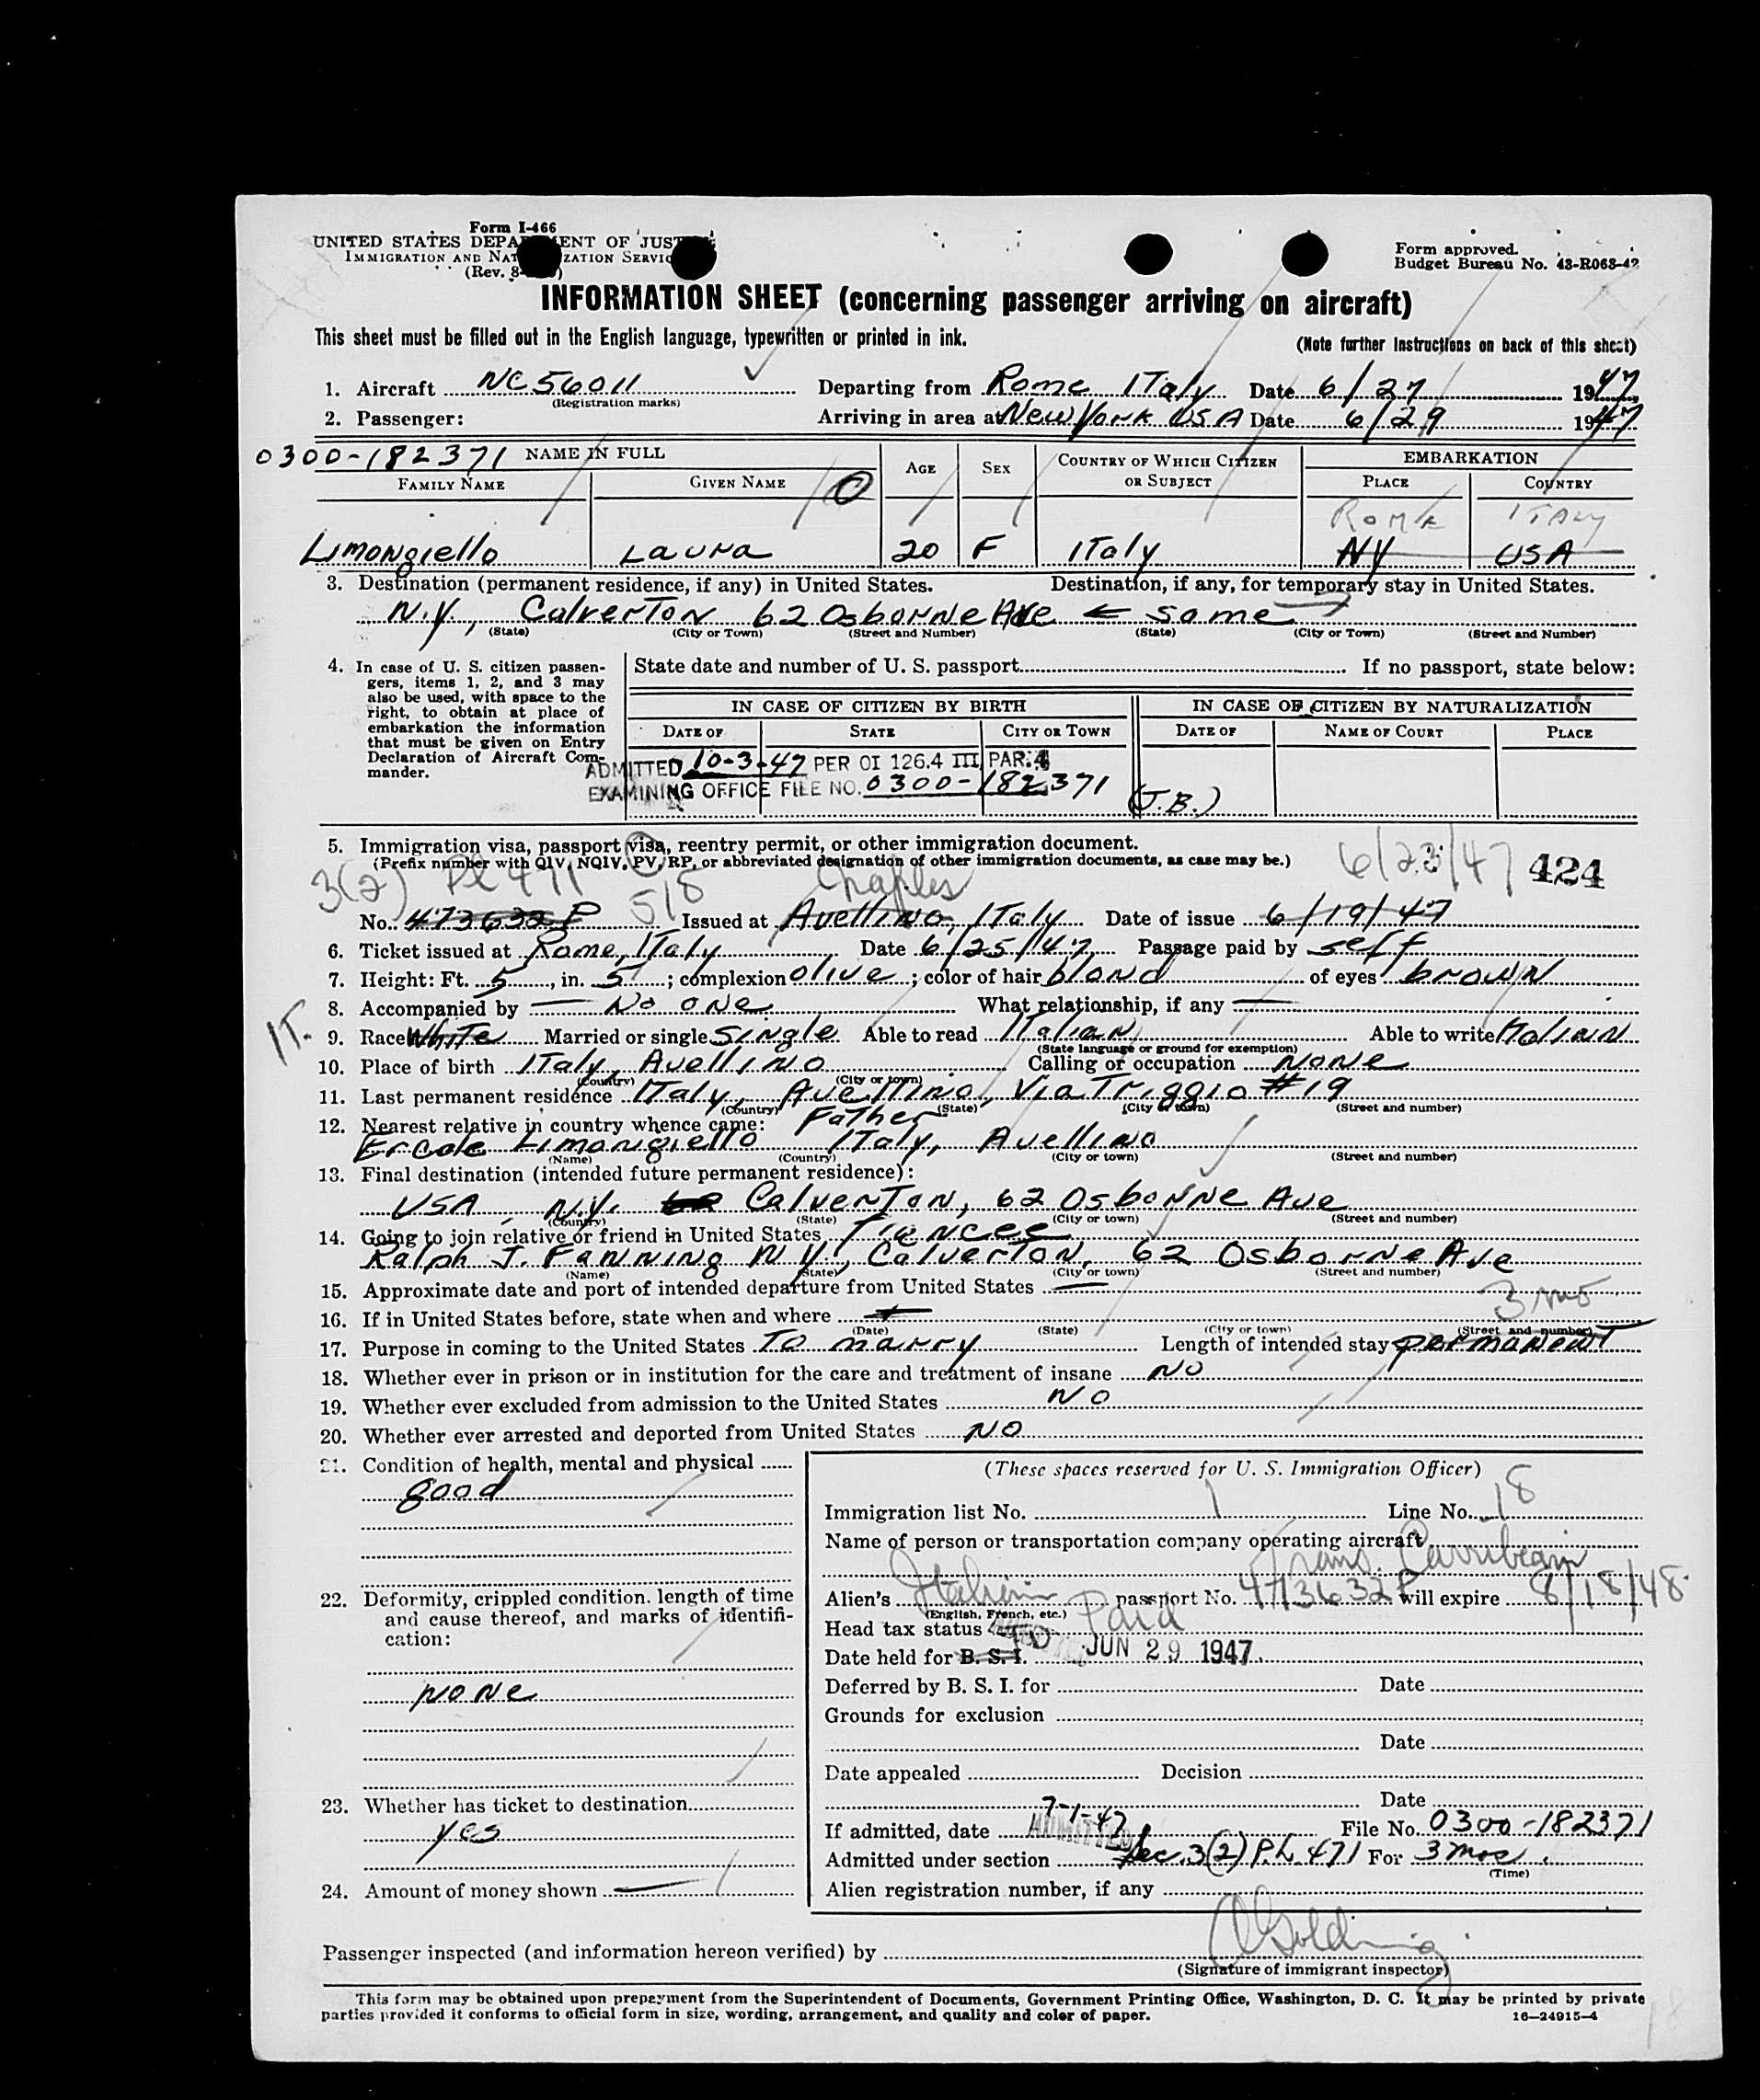 Form I-466
UNITED STATES DEPA ENT OF JUST
IMMIGRATION AND NAT ZATION SERVIC
(Rev. 8- )
Form approved.
Budget Bureau No. 43-R063-42
INFORMATION SHEET (concerning passenger arriving on aircraft)
This sheet must be filled out in the English language, typewritten or printed in ink.
(Note further Instructions on back of this sheet)
1. Aircraft NC56011 Departing from Rome ITaly Date 6/27 1947
(Registration marks)
2. Passenger: Arriving in area at New York USA Date 6/29 1947
0300-182371 NAME IN FULL AGE SEX COUNTRY OF WHICH CITIZEN OR SUBJECT EMBARKATION
FAMILY NAME GIVEN NAME O PLACE COUNTRY
ROME ITALY
Limongiello Laura 20 F ITaly NY USA
3. Destination (permanent residence, if any) in United States. Destination, if any, for temporary stay in United States.
N.Y., CalverTon 62 Osborne Ave ← same →
(State) (City or Town) (Street and Number) (State) (City or Town) (Street and Number)
4. In case of U. S. citizen passengers, items 1, 2, and 3 may also be used, with space to the right, to obtain at place of embarkation the information that must be given on Entry Declaration of Aircraft Commander.
State date and number of U. S. passport If no passport, state below:
IN CASE OF CITIZEN BY BIRTH IN CASE OF CITIZEN BY NATURALIZATION
DATE OF STATE CITY OR TOWN DATE OF NAME OF COURT PLACE
ADMITTED 10-3-47 PER OI 126.4 III PAR. 4
EXAMINING OFFICE FILE NO. 0300-182371 (J.B.)
5. Immigration visa, passport visa, reentry permit, or other immigration document.
(Prefix number with QIV, NQIV, PV, RP, or abbreviated designation of other immigration documents, as case may be.)
3(2) PL 471 518 Naples 6/23/47 424
No. 473632P Issued at Avellino, ITaly Date of issue 6/19/47
6. Ticket issued at Rome, ITaly Date 6/25/47 Passage paid by self
7. Height: Ft. 5, in. 5; complexion olive; color of hair blond of eyes brown
8. Accompanied by — No one What relationship, if any —
IT.
9. Race White Married or single Single Able to read ITalian Able to write ITalian
(State language or ground for exemption)
10. Place of birth ITaly, Avellino Calling or occupation NoNe
(Country) (City or town)
11. Last permanent residence ITaly, Avellino, Via Triggio #19
(Country) (State) (City or town) (Street and number)
12. Nearest relative in country whence came: Father
Ercole Limongiello ITaly, Avellino
(Name) (Country) (City or town) (Street and number)
13. Final destination (intended future permanent residence):
USA, N.Y. CalverTon, 62 Osborne Ave
(Country) (State) (City or town) (Street and number)
14. Going to join relative or friend in United States Fiancee
Ralph J. Fanning N.Y., CalverTon, 62 Osborne Ave
(Name) (State) (City or town) (Street and number)
15. Approximate date and port of intended departure from United States —
3 mo
16. If in United States before, state when and where —
(Date) (State) (City or town) (Street and number)
17. Purpose in coming to the United States To marry Length of intended stay permanenT
18. Whether ever in prison or in institution for the care and treatment of insane No
19. Whether ever excluded from admission to the United States No
20. Whether ever arrested and deported from United States NO
21. Condition of health, mental and physical
good
22. Deformity, crippled condition. length of time and cause thereof, and marks of identification:
none
23. Whether has ticket to destination
yes
24. Amount of money shown —
(These spaces reserved for U. S. Immigration Officer)
Immigration list No. 1 Line No. 18
Name of person or transportation company operating aircraft
Trans. Carribean
Alien's Italian passport No. 473632P will expire 8/18/48
(English, French, etc.)
Head tax status Paid
Date held for B. S. I. JUN 29 1947
Deferred by B. S. I. for Date
Grounds for exclusion
Date
Date appealed Decision
Date
7-1-47
If admitted, date ADMITTED File No. 0300-182371
Admitted under section Sec. 3(2) P.L. 471 For 3 mos.
(Time)
Alien registration number, if any
Passenger inspected (and information hereon verified) by
(Signature of immigrant inspector)
This form may be obtained upon prepayment from the Superintendent of Documents, Government Printing Office, Washington, D. C. It may be printed by private
parties provided it conforms to official form in size, wording, arrangement, and quality and color of paper.
16—24915-4
18